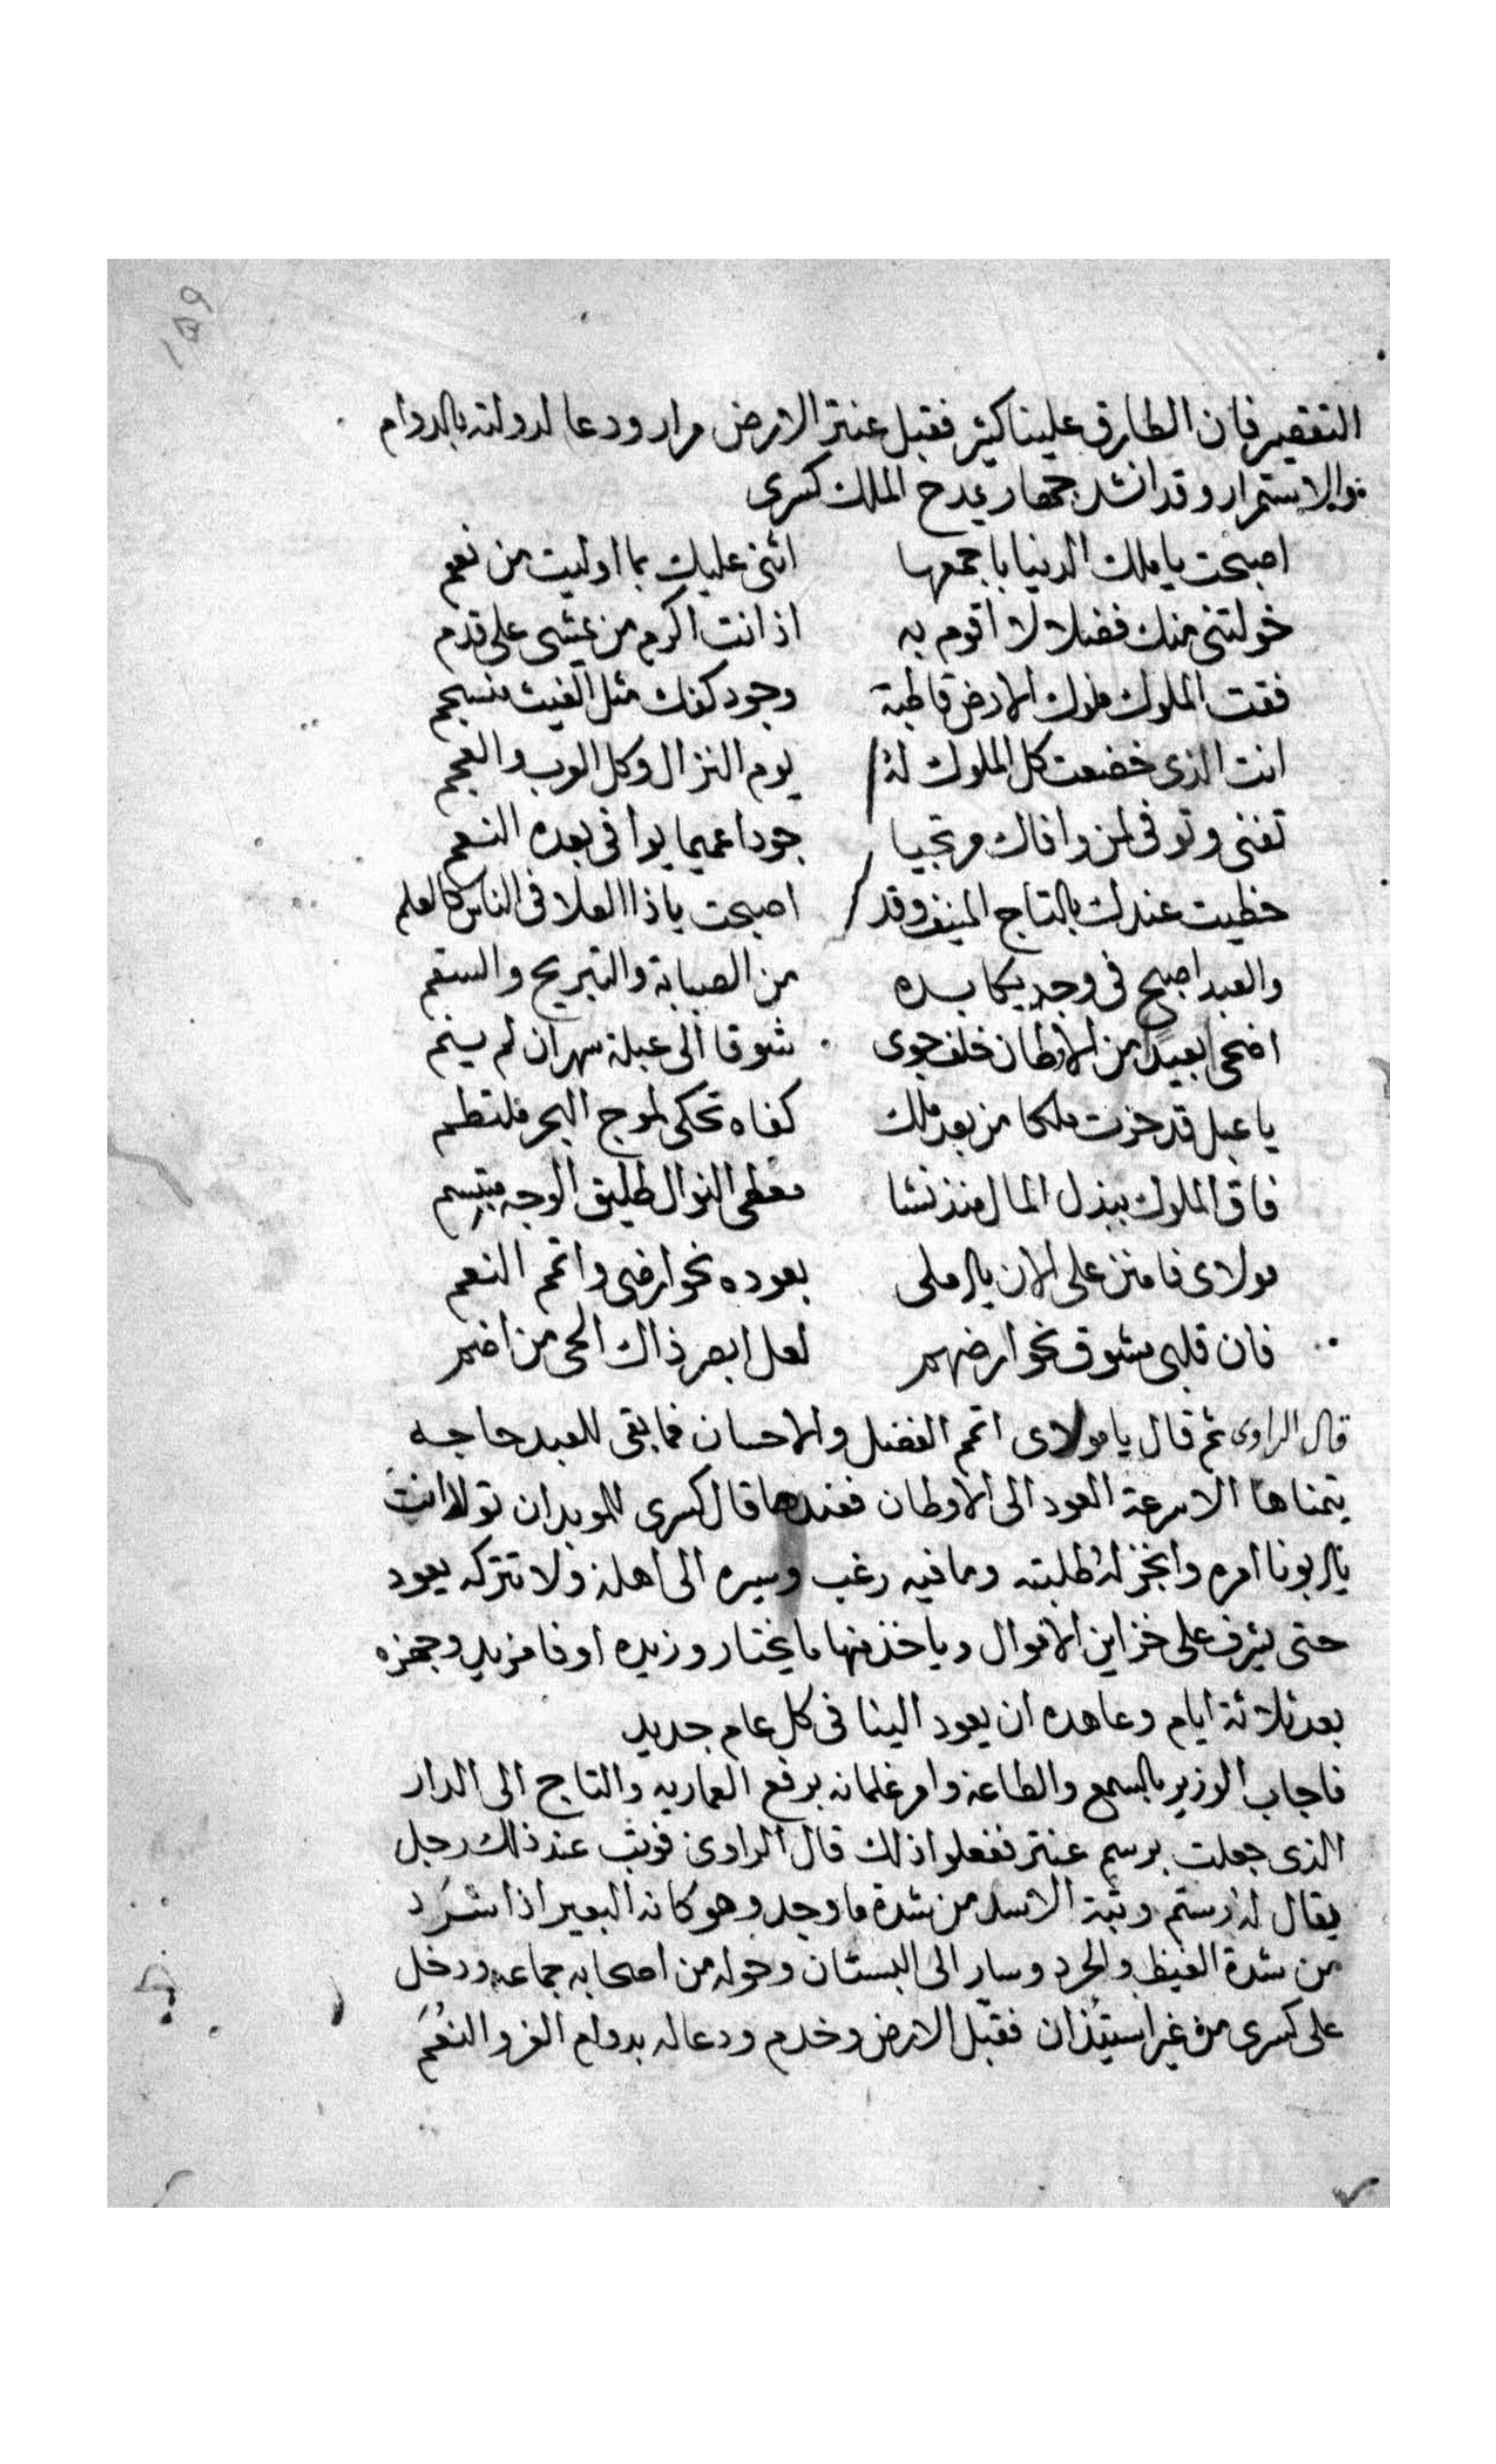 ١٥٩
التقصير فان الطارق علينا كثير فقبل عنتر الارض مرار ودعا لدولته بالدوام
والاستمرار وقد انشد جهار يمدح الملك كسرى
اصبحت يا ملك الدنيا باجمعها اثنى عليك بما اوليت من نعم
خولتنى منك فضلا لا اقوم به اذ انت اكرم من يمشى على قدم
فقت الملوك ملوك الارض قاطبة وجود كفك مثل الغيث منسجم
انت الذى خضعت كل الملوك له يوم النزال وكل العرب والعجم
تغنى وتوفى لمن وافاك مرتجيا جودا عميما يوافى بعده النعم
حظيت عندك بالتاج المنيف وقد اصبحت ياذا العلا فى الناس كالعلم
والعبد اصبح فى وجد يكابده من الصبابة والتبريح والسقم
اضحى بعيدا من الاوطان خلف جوى شوقا الى عبلة سهران لم ينم
يا عبل قد حزت ملكا من بعد ملك كفاه تحكى لموج البحر ملتطم
فاق الملوك ببذل المال منذ نشا معطى النوال طليق الوجه مبتسم
مولاى فامنن على الان يا املى بعوده نحو ارضى واتمم النعم
فان قلبى مشوق نحو ارضهم لعل ابصر ذاك الحى من اضم
قال الراوى ثم قال يا مولاى اتمم الفضل والاحسان فما بقى للعبد حاجه
يتمناها الا سرعة العود الى الاوطان فعندها قال كسرى للموبدان تولا انت
يا ابونا امره وانجز له طلبته وما فيه رغب وسيره الى اهله ولا تتركه يعود
حتى يشرف على خزاين الاموال وياخذ منها ما يختار وزيده اوفا مزيد وجهزه
بعد ثلاثة ايام وعاهده ان يعود الينا فى كل عام جديد
فاجاب الوزير بالسمع والطاعه وامر غلمانه برفع العماريه والتاج الى الدار
الذى جعلت برسم عنتر ففعلوا ذلك قال الراوى فوثب عند ذلك رجل
يقال له رستم وثبة الاسد من شدة ما وجد وهو كانه البعير اذا شرد
من شدة الغيظ والحرد وسار الى البستان وحوله من اصحابه جماعه ودخل
على كسرى من غير استيذان فقبل الارض وخدم ودعا له بدوام العز والنعم